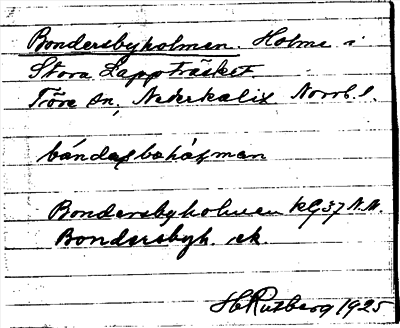 Bondersbyholmen. Holme i
Stora Lappträsket
Töre sn, Nederkalix Norrb. l.
bóndaʂbøhóʂman
Bondersbyholmen kG37 N.N.
Bondersbyh. ek.
HRutberg 1925